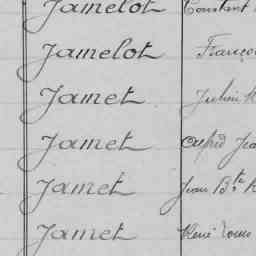 Jamelot Constant
Jamelot Franço
Jamet Julien M
Jamet Alfred Jea
Jamet Jean B.te
Jamet René Louis